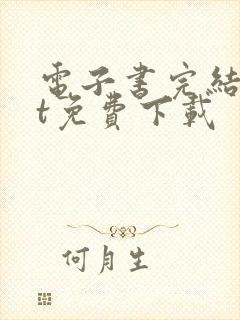 電子書完結
t免費下載
何月生